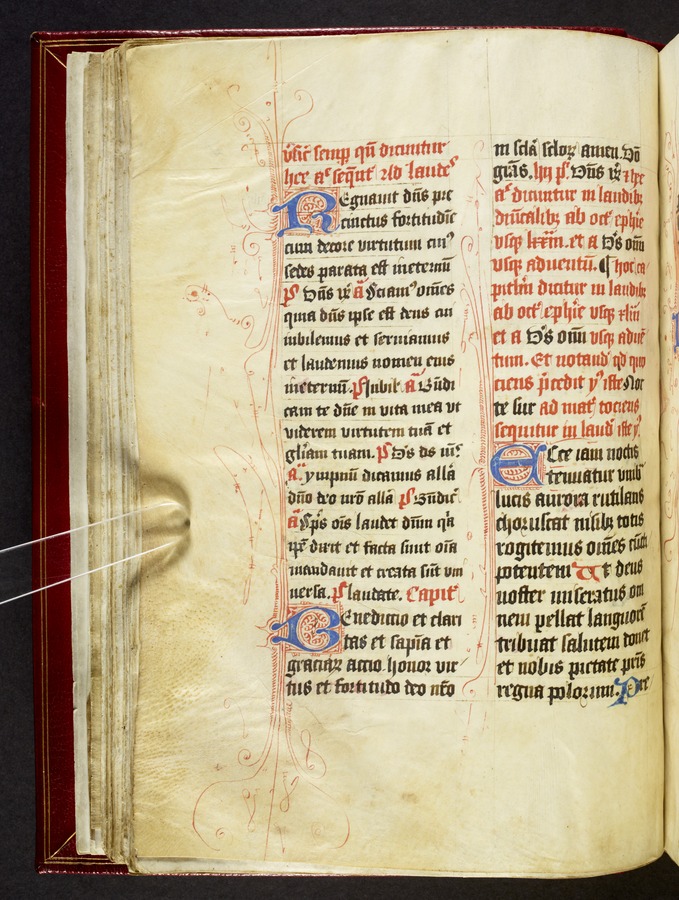 vsic semp qn dicuntur
hee aᵉ sequt Ad laudes
Regnauit dns pre
cinctus fortitudie
cum decore virtutum eius
sedes parata est ineternu
ps Dns re a Sciamus omes
quia dns ipse est deus an
iubilemus et seruiamus
et laudemus nomen eius
ineternu. ps Iubil a Bndi
cam te dne in vita mea vt
viderem virtutem tua et
gliam tuam. ps Ds ds meus
a ympnu dicamus alla
dno deo nro alla ps Bndic
a Sps ois laudet dnm qa
ipe dixit et facta sunt oia
mandauit et creata sut vni
uersa. ps laudate. Capitl
Benedictio et clari
tas et sapia et
graciarꝝ actio honor vir
tus et fortitudo deo nro
in scla sclorꝝ amen. Do
gras. hy ps. Dns re
aᵉ dicuntur in laudibꝫ
diuicalibꝫ ab octᵉ ephie
vsqꝫ lxxm. et a Ds oim
vsqꝫ aduentu. hoc ca
pitlm dicitur in laudibꝫ
ab octᵉ ephie vsqꝫ xlm
et a Ds oim vsqꝫ aduen
tum. Et notand qd quo
ciens pcedit y iste Noc
te sur ad mat tociens
sequitur in laud iste y
Ecce iam noctis
tenuatur vmbra
lucis aurora rutilans
choruscat nisibꝫ totis
rogitemus omes cuncti
potentem Ut deus
noster miseratus om
nem pellat languore
tribuat salutem donet
et nobis pietate pris
regna polorum. Pre